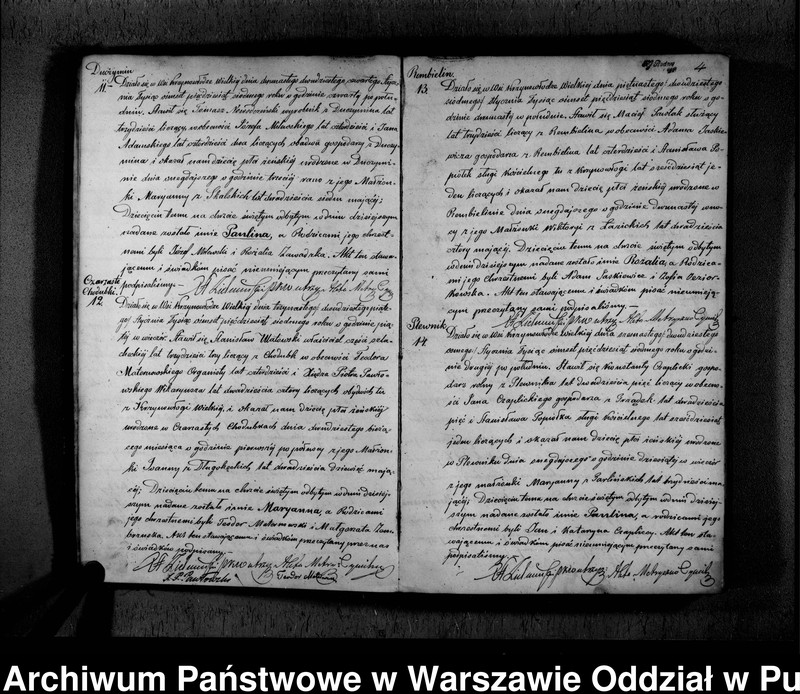 Duczymin
11
Działo się w Wsi Krzynowłodze Wielkiej dnia dwunastego/dwudziestego czwartego Stycz-
nia tysiąc ośmset pięćdziesiąt siódmego roku o godzinie czwartej po połu-
dniu. Stawił się Tomasz wyrobnik z Duczymina lat
trzydzieści liczący w obecności Józefa Milewskiego lat czterdzieści i Jana
Adamskiego lat czterdzieści dwa liczących obudwu gospodarzy z Duczy-
mina i okazał nam dziecię płci żeńskiej urodzone w Duczymi-
nie dnia onegdajszego o godzinie trzeciej rano z jego Małżon-
ki Maryanny z Skalskich lat dwadzieścia siedm mającej;
Dziecięciu temu na chrzcie świętym odbytym w dniu dzisiejszym
nadane zostało imie Paulina, a Rodzicami jego chrzest-
nemi byli Józef Milewski i Rozalia Zawadzka. Akt ten stawa-
jącemu i świadkom pisać nieumiejącym przeczytany sami
podpisaliśmy
Czarzaste
Chodubki
12
Działo się w Wsi Krzynowłodze Wielkiej dnia trzynastego/dwudziestego piąte-
go Stycznia tysiąc ośmset pięćdziesiąt siódmego roku o godzinie pią-
tej w wieczór. Stawił się Stanisław Walewski właściciel części szla-
checkiej lat trzydzieści trzy liczący z Chodubek w obecności Teodora
Malinowskiego Organisty lat czterdzieści i Xiędza Piotra Pawło-
wskiego Wikaryusza lat dwadzieścia cztery liczących obydwóch tu
z Krzynowłogi Wielkiej, i okazał nam dziecię płci żeńskiej
urodzone w Czarzastych Chodubkach dnia dwudziestego bieżą-
cego miesiąca o godzinie pierwszej po północy z jego Małżon-
ki Joanny z Długołęckich lat dwadzieścia dziewięć mają-
cej. Dziecięciu temu na chrzcie świętym odbytym w dniu dzisiej-
szym nadane zostało imie Maryanna, a Rodzicami
jego chrzestnemi byli Teodor Malinowski i Małgorzata
Akt ten stawającemu i świadkom przeczytany przez nas
i świadków podpisany
Rembielin
4
13
Działo się w Wsi Krzynowłodze Wielkiej dnia piętnastego/dwudziestego
siódmego/Stycznia tysiąc ośmset pięćdziesiąt siódmego roku o go-
dzinie dwunastej w południe. Stawił się Maciej służący
lat trzydzieści liczący z Rembielina w obecności Adama Jaśkie-
wicza gospodarza z Rembielina lat czterdzieści i Stanisława Po-
piołek sługi kościelnego tu z Krzynowłogi lat sześćdziesiąt je-
den liczących i okazał nam dziecię płci żeńskiej urodzone w
Rembielinie dnia onegdajszego o godzinie dwunastej w no-
cy z jego Małżonki Wiktoryi z lat dwadzieścia
cztery mającej. Dziecięciu temu na chrzcie świętym odbytym
w dniu dzisiejszym nadane zostało imie Rozalia, a Rodzica-
mi jego Chrzestnemi byli Adam Jaśkiewicz i Zofia
Akt ten stawającemu i świadkom pisać nieumieją-
cym przeczytany sami podpisaliśmy
Plewnik
14
Działo się w Wsi Krzynowłodze Wielkiej dnia szesnastego/dwudziestego
ósmego/Stycznia tysiąc ośmset pięćdziesiąt siódmego roku o godzi-
nie drugiej po południu. Stawił się Konstanty Czaplicki gospo-
darz rolny z Plewnika lat dwadzieścia pięć liczący w obecno-
ści Jana Czaplickiego gospodarza z lat dwadzieścia
pięć i Stanisława Popiołka sługi kościelnego lat sześćdziesiąt
jeden liczących i okazał nam dziecię płci żeńskiej urodzone
w Plewniku dnia onegdajszego o godzinie dziesiątej w wieczór
z jego małżonki Maryanny z Karlińskich lat trzydzieści ma-
jącej; Dziecięciu temu na chrzcie świętym odbytym w dniu dzisiej-
szym nadane zostało imie Paulina, a rodzicami jego
chrzestnemi byli Jan i Katarzyna Czaplicy. Akt ten sta-
wającemu i świadkom pisać nieumiejącym przeczytany sami
podpisaliśmy
Archiwum Państwowe w Warszawie Oddział w Pu